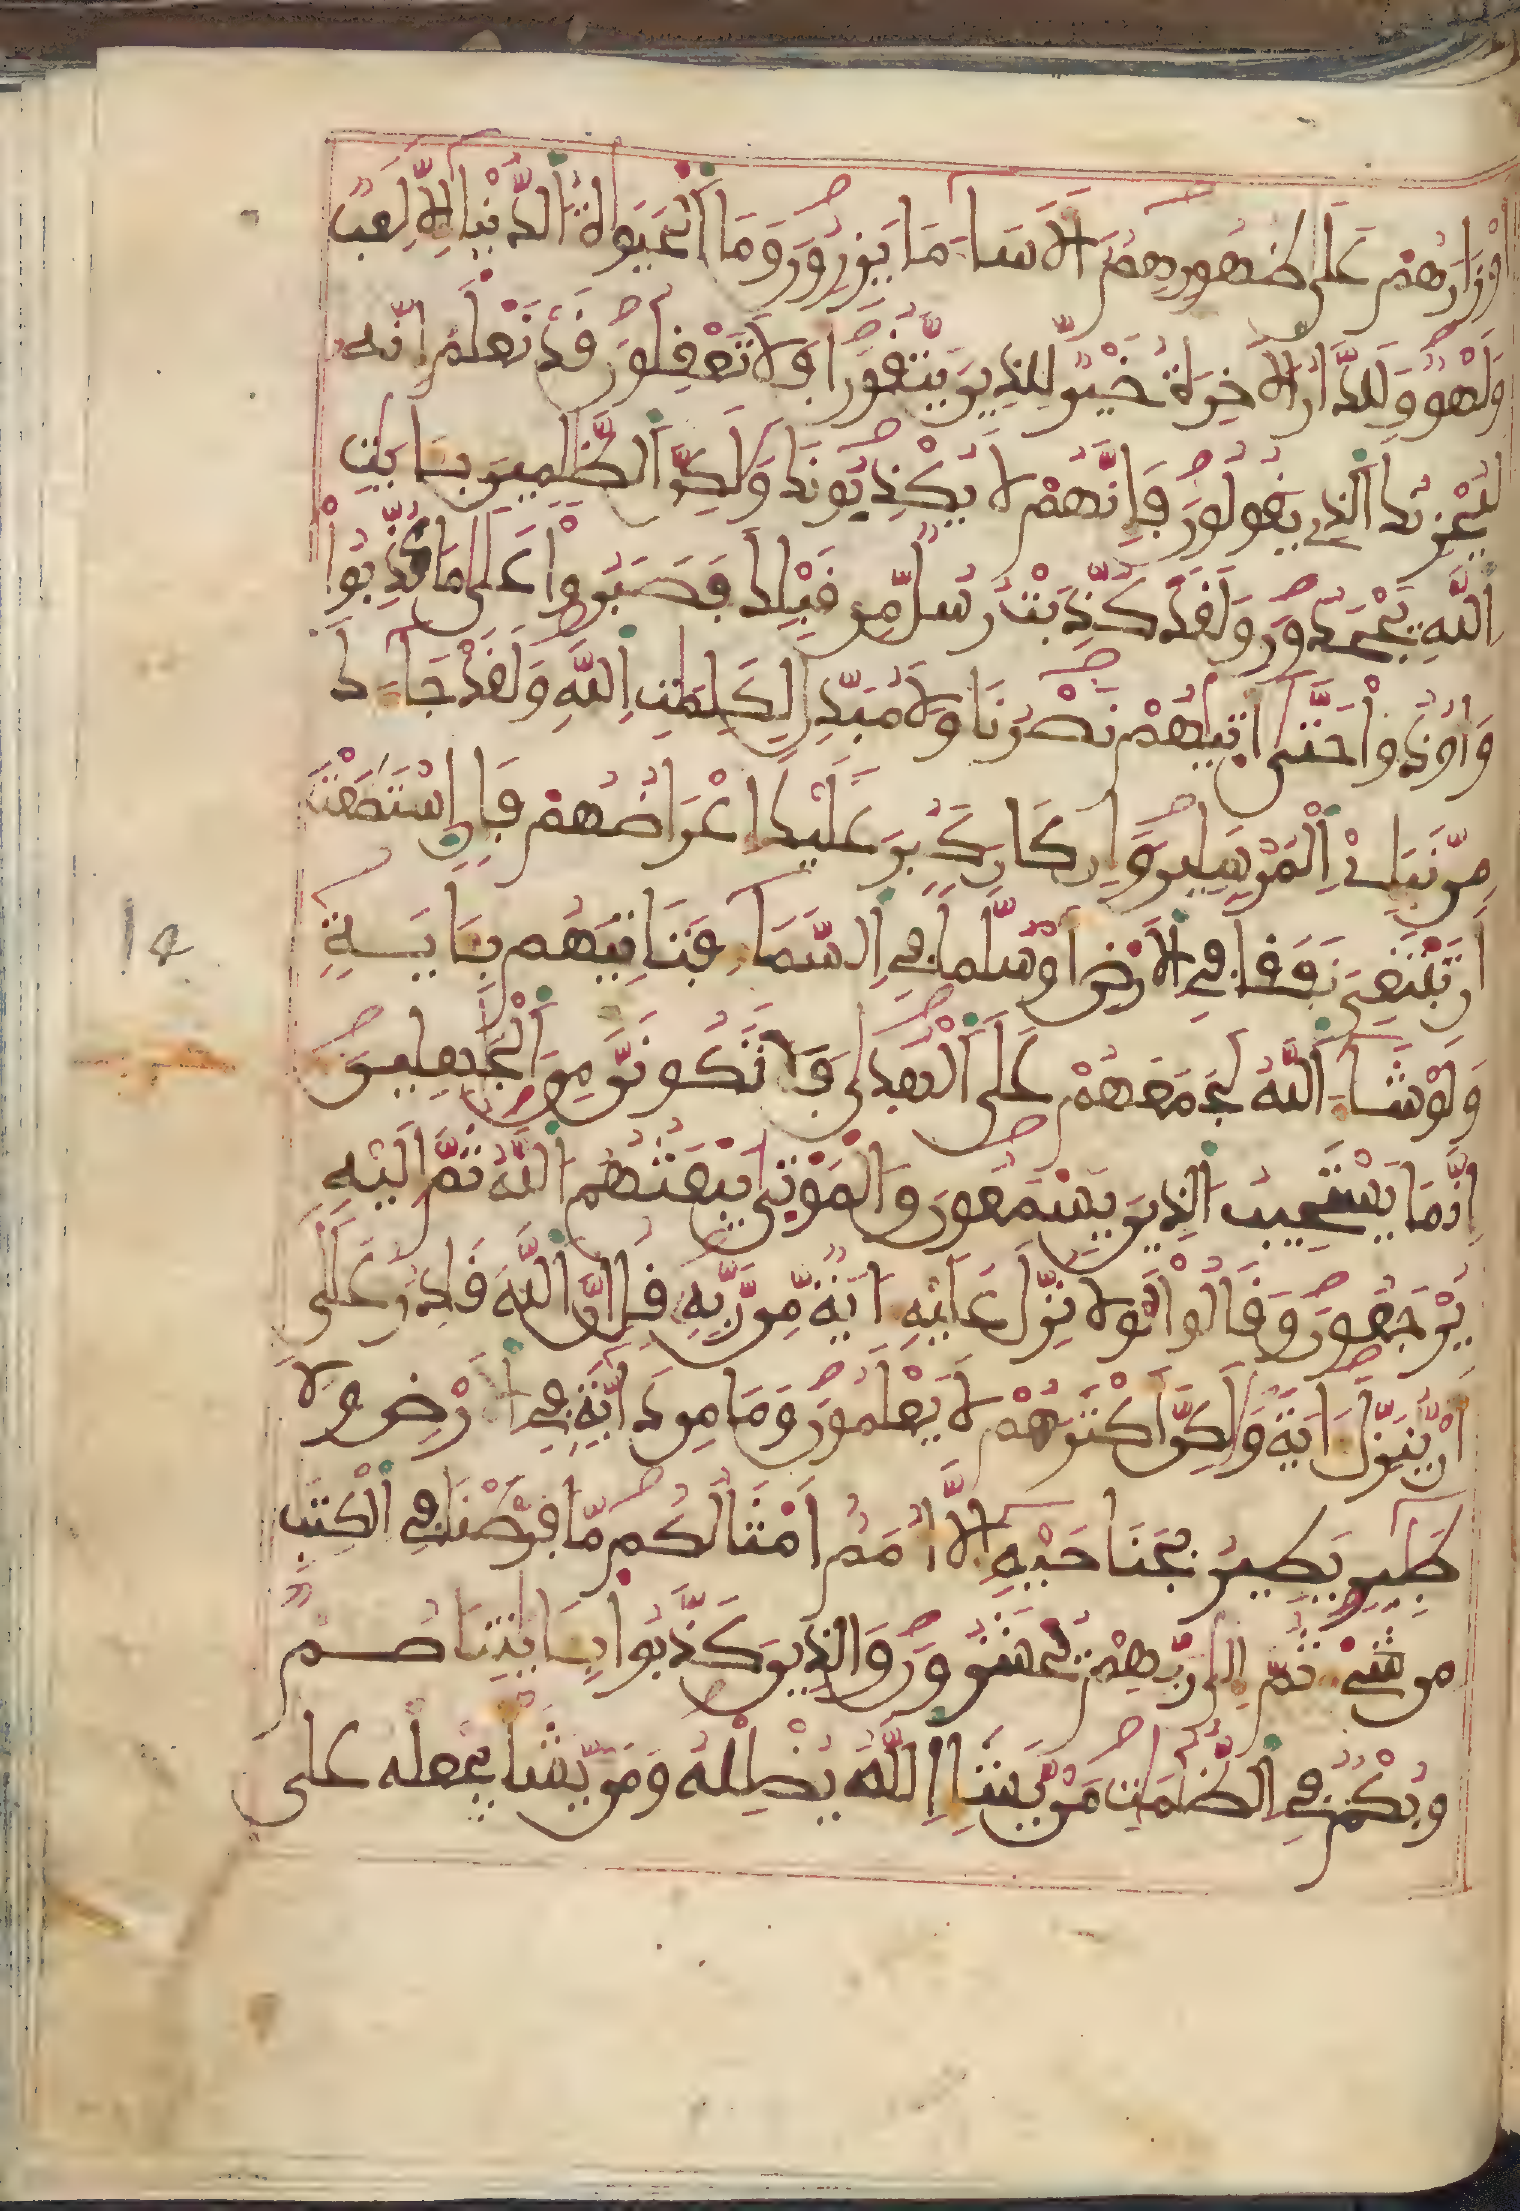 أَوْزَارَهُمْ عَلَىٰ ظُهُورِهِمُۥ أَلَا سَآءَ مَا يَزِرُونَ وَمَا اَ۬لْحَيَوٰةُ اُ۬لدُّنْيَا إِلَّا لَعِبٌ
وَلَهْوٌ وَلَلدَّارُ اُ۬لَاخِرَةُ خَيْرٌ لِّلذِينَ يَتَّقُونَ أَفَلَا تَعْقِلُونَ قَدْ نَعْلَمُ إِنَّهُۥ
لَيُحْزِنُكَ اَ۬لذِے يَقُولُونَ فَإِنَّهُمْ لَا يُكْذِبُونَكَ وَلَٰكِنَّ اَ۬لظَّٰلِمِينَ بِـَٔايَٰتِ
اِ۬للَّهِ يَجْحَدُونَ وَلَقَدْ كُذِّبَتْ رُسُلٌ مِّن قَبْلِكَ فَصَبَرُواْ عَلَىٰ مَا كُذِّبُواْ
وَأُوذُواْ حَتَّىٰ أَتَيٰهُمْ نَصْرُنَا وَلَا مُبَدِّلَ لِكَلِمَٰتِ اِ۬للَّهِ وَلَقَدْ جَآءَكَ
مِن نَّبَإِےْ اِ۬لْمُرْسَلِينَ وَإِن كَانَ كَبُرَ عَلَيْكَ إِعْرَاضُهُمْ فَإِنِ اِ۪سْتَطَعْتَ
أَن تَبْتَغِيَ نَفَقاً فِي اِ۬لَارْضِ أَوْ سُلَّماً فِي اِ۬لسَّمَآءِ فَتَاتِيَهُم بِـَٔايَةٍ
وَلَوْ شَآءَ اَ۬للَّهُ لَجَمَعَهُمْ عَلَى اَ۬لْهُدَىٰ فَلَا تَكُونَنَّ مِنَ اَ۬لْجَٰهِلِينَ
إِنَّمَا يَسْتَجِيبُ اُ۬لذِينَ يَسْمَعُونَ وَالْمَوْتَىٰ يَبْعَثُهُمُ اُ۬للَّهُ ثُمَّ إِلَيْهِ
يُرْجَعُونَ وَقَالُواْ لَوْلَا نُزِّلَ عَلَيْهِ ءَايَةٌ مِّن رَّبِّهِ قُلِ اِنَّ اَ۬للَّهَ قَادِرٌ عَلَىٰ
أَنْ يُّنَزِّلَ ءَايَةً وَلَٰكِنَّ أَكْثَرَهُمْ لَا يَعْلَمُونَ وَمَا مِن دَآبَّةٍ فِي اِ۬لَارْضِ وَلَا
طَٰٓئِرٍ يَطِيرُ بِجَنَاحَيْهِ إِلَّا أُمَمٌ اَمْثَالُكُم مَّا فَرَّطْنَا فِي اِ۬لْكِتَٰبِ
مِن شَےْءٍ ثُمَّ إِلَىٰ رَبِّهِمْ يُحْشَرُونَ وَالذِينَ كَذَّبُواْ بِـَٔايَٰتِنَا صُمٌّ
وَبُكْمٌ فِي اِ۬لظُّلُمَٰتِ مَنْ يَّشَإِ اِ۬للَّهُ يُضْلِلْهُ وَمَنْ يَّشَأْ يَجْعَلْهُ عَلَىٰ